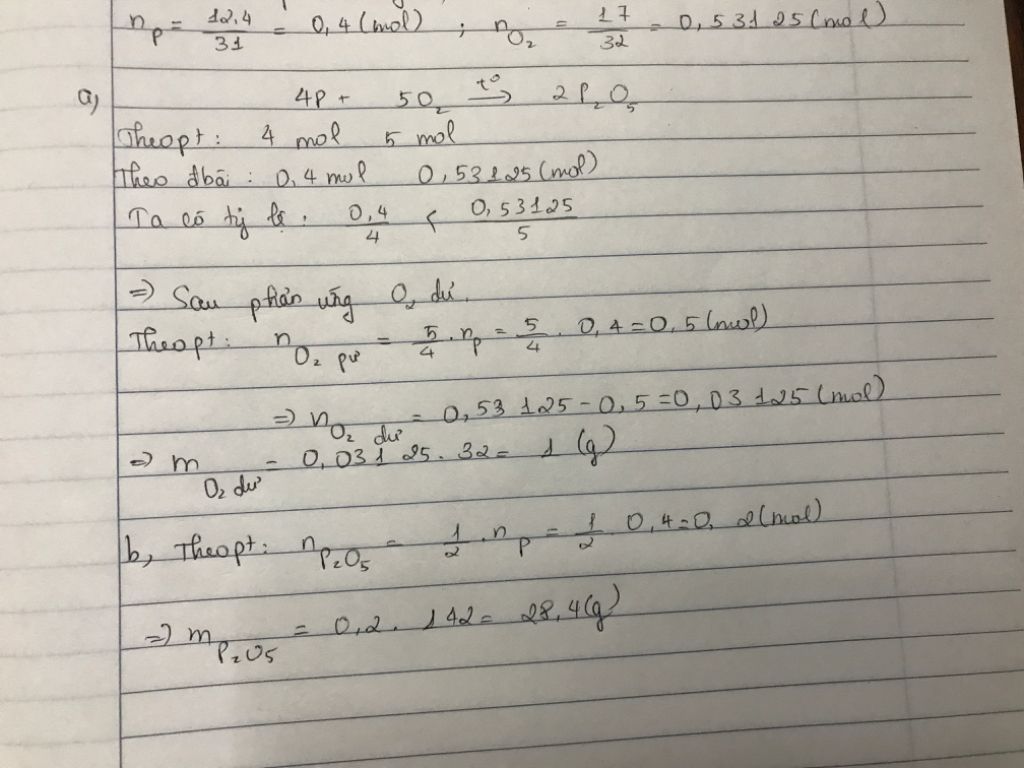 n_P = 12,4/31 = 0,4 (mol) ; n_O₂ = 17/32 = 0,53125 (mol)
a) 4P + 5O₂ →(t°) 2P₂O₅
Theo pt: 4 mol 5 mol
Theo đbài: 0,4 mol 0,53125 (mol)
Ta có tỷ lệ: 0,4/4 < 0,53125/5
=> Sau phản ứng O₂ dư.
Theo pt: n_O₂ pư = 5/4 . n_P = 5/4 . 0,4 = 0,5 (mol)
=> n_O₂ dư = 0,53125 - 0,5 = 0,03125 (mol)
=> m_O₂ dư = 0,03125 . 32 = 1 (g)
b, Theo pt: n_P₂O₅ = 1/2 . n_P = 1/2 . 0,4 = 0,2 (mol)
=> m_P₂O₅ = 0,2 . 142 = 28,4 (g)